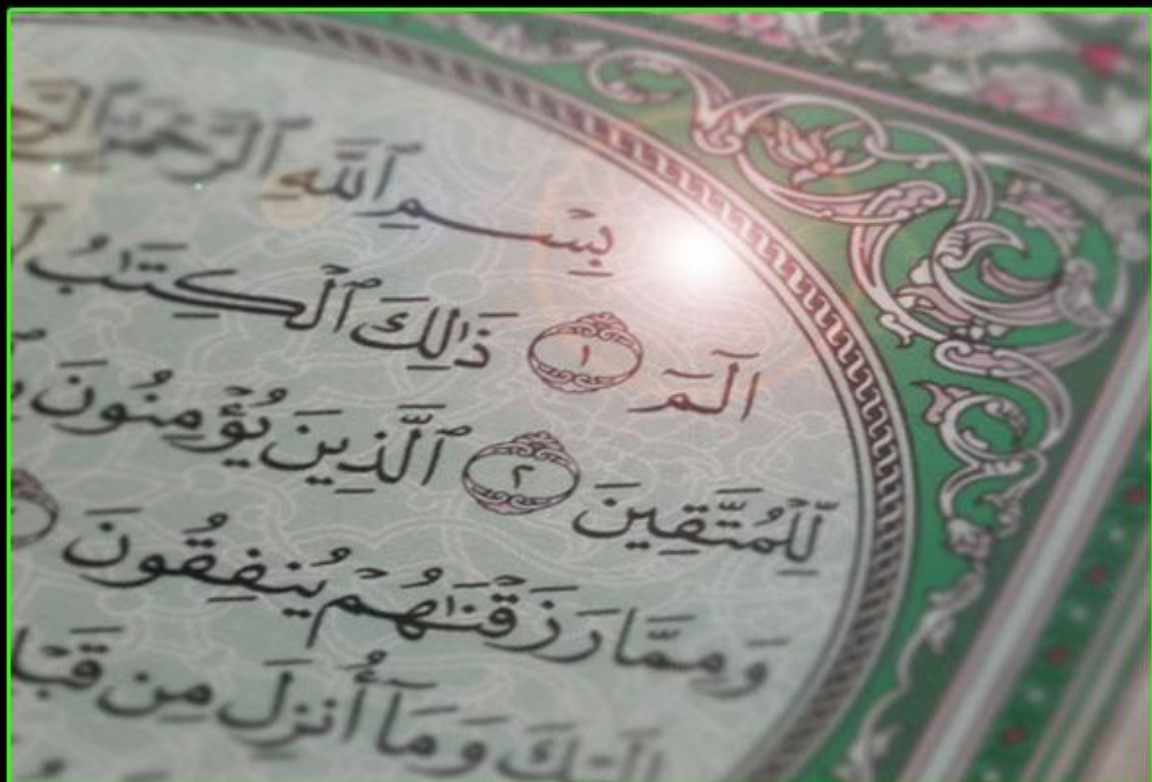 بِسْمِ ٱللَّهِ ٱلرَّحْمَٰنِ
الٓمٓ ١ ذَٰلِكَ ٱلْكِتَٰبُ
لِّلْمُتَّقِينَ ٢ ٱلَّذِينَ يُؤْمِنُونَ
وَمِمَّا رَزَقْنَٰهُمْ يُنفِقُونَ
إِلَيْكَ وَمَآ أُنزِلَ مِن